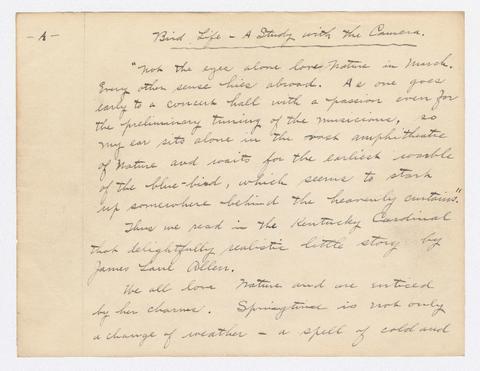 -A-
Bird Life - A Study with the Camera.
"Not the eyes alone love Nature in March.
Every other sense hies abroad. As one goes
early to a concert hall with a passion even for
the preliminary tuning of the musicians, so
my ear sits alone in the vast amphitheatre
of Nature and waits for the earliest warble
of the blue-bird, which seems to start
up somewhere behind the heavenly curtains."
Thus we read in the Kentucky Cardinal
that delightfully realistic little story by
James Lane Allen.
We all love Nature and are enticed
by her charms. Springtime is not only
a change of weather - a spell of cold and